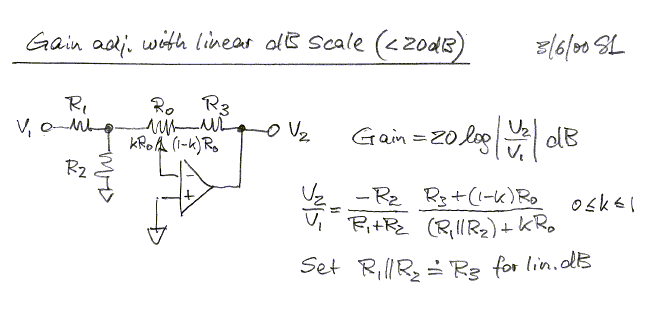 Gain adj. with linear dB scale (<20dB)
3/6/00 SL
R₁ R₀ R₃
V₁ V₂
kR₀ (1-k)R₀
R₂
-
+
Gain = 20 log |V₂/V₁| dB
V₂/V₁ = -R₂/(R₁+R₂) (R₃+(1-k)R₀)/((R₁||R₂)+kR₀) 0≤k≤1
Set R₁||R₂ ≐ R₃ for lin. dB